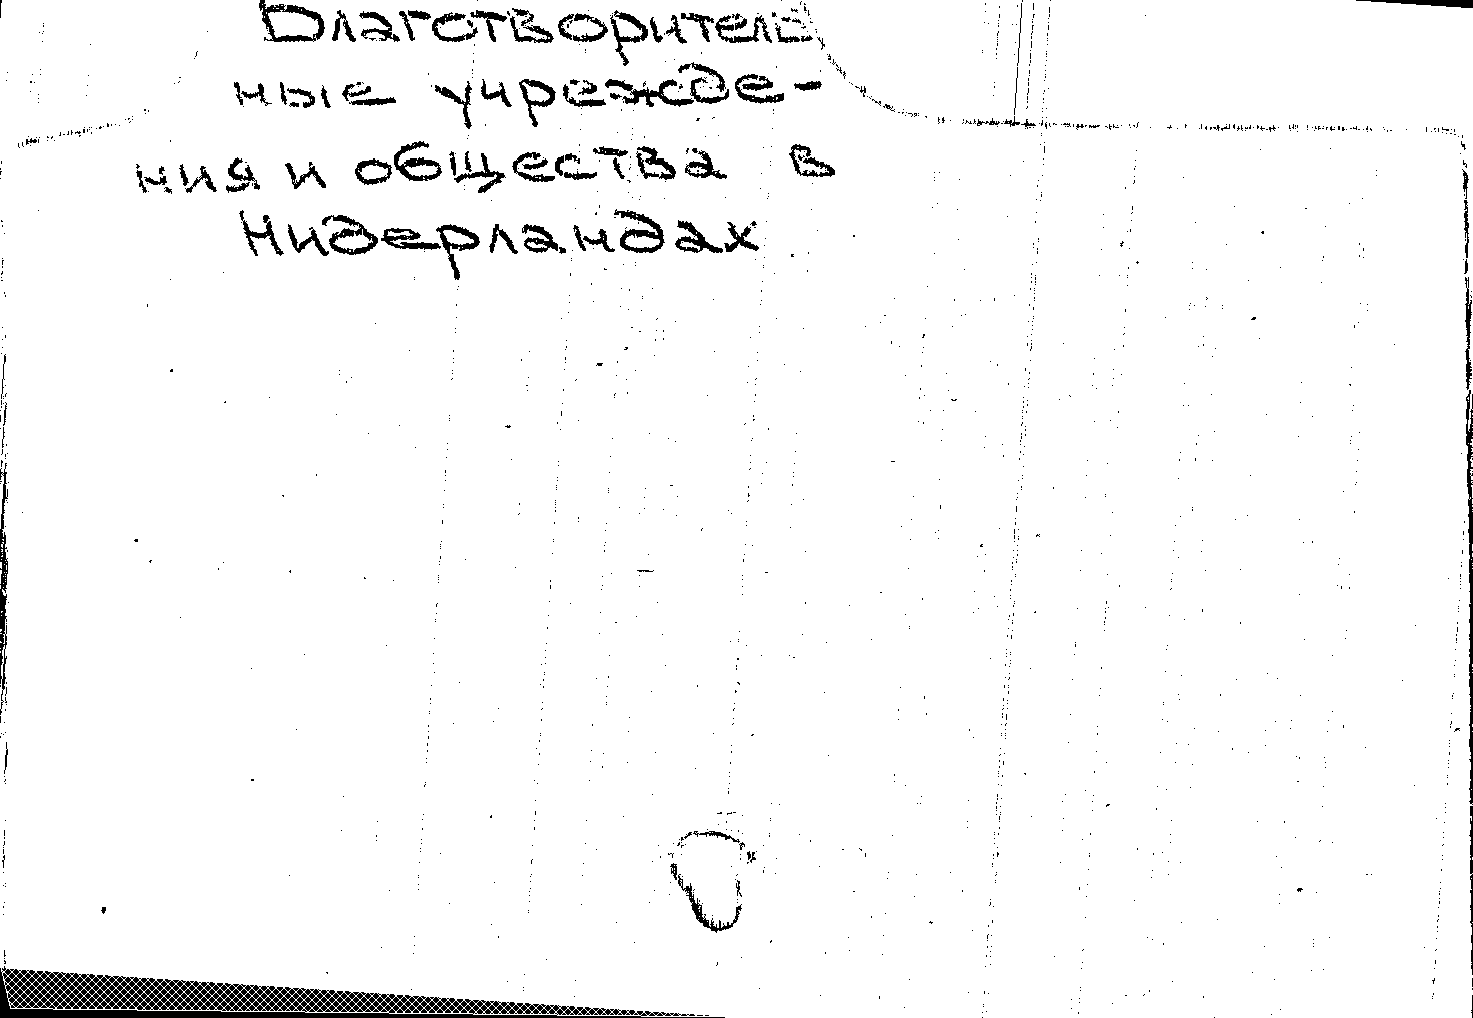 Благотворитель
ные учрежде-
ния и общества в
Нидерландах